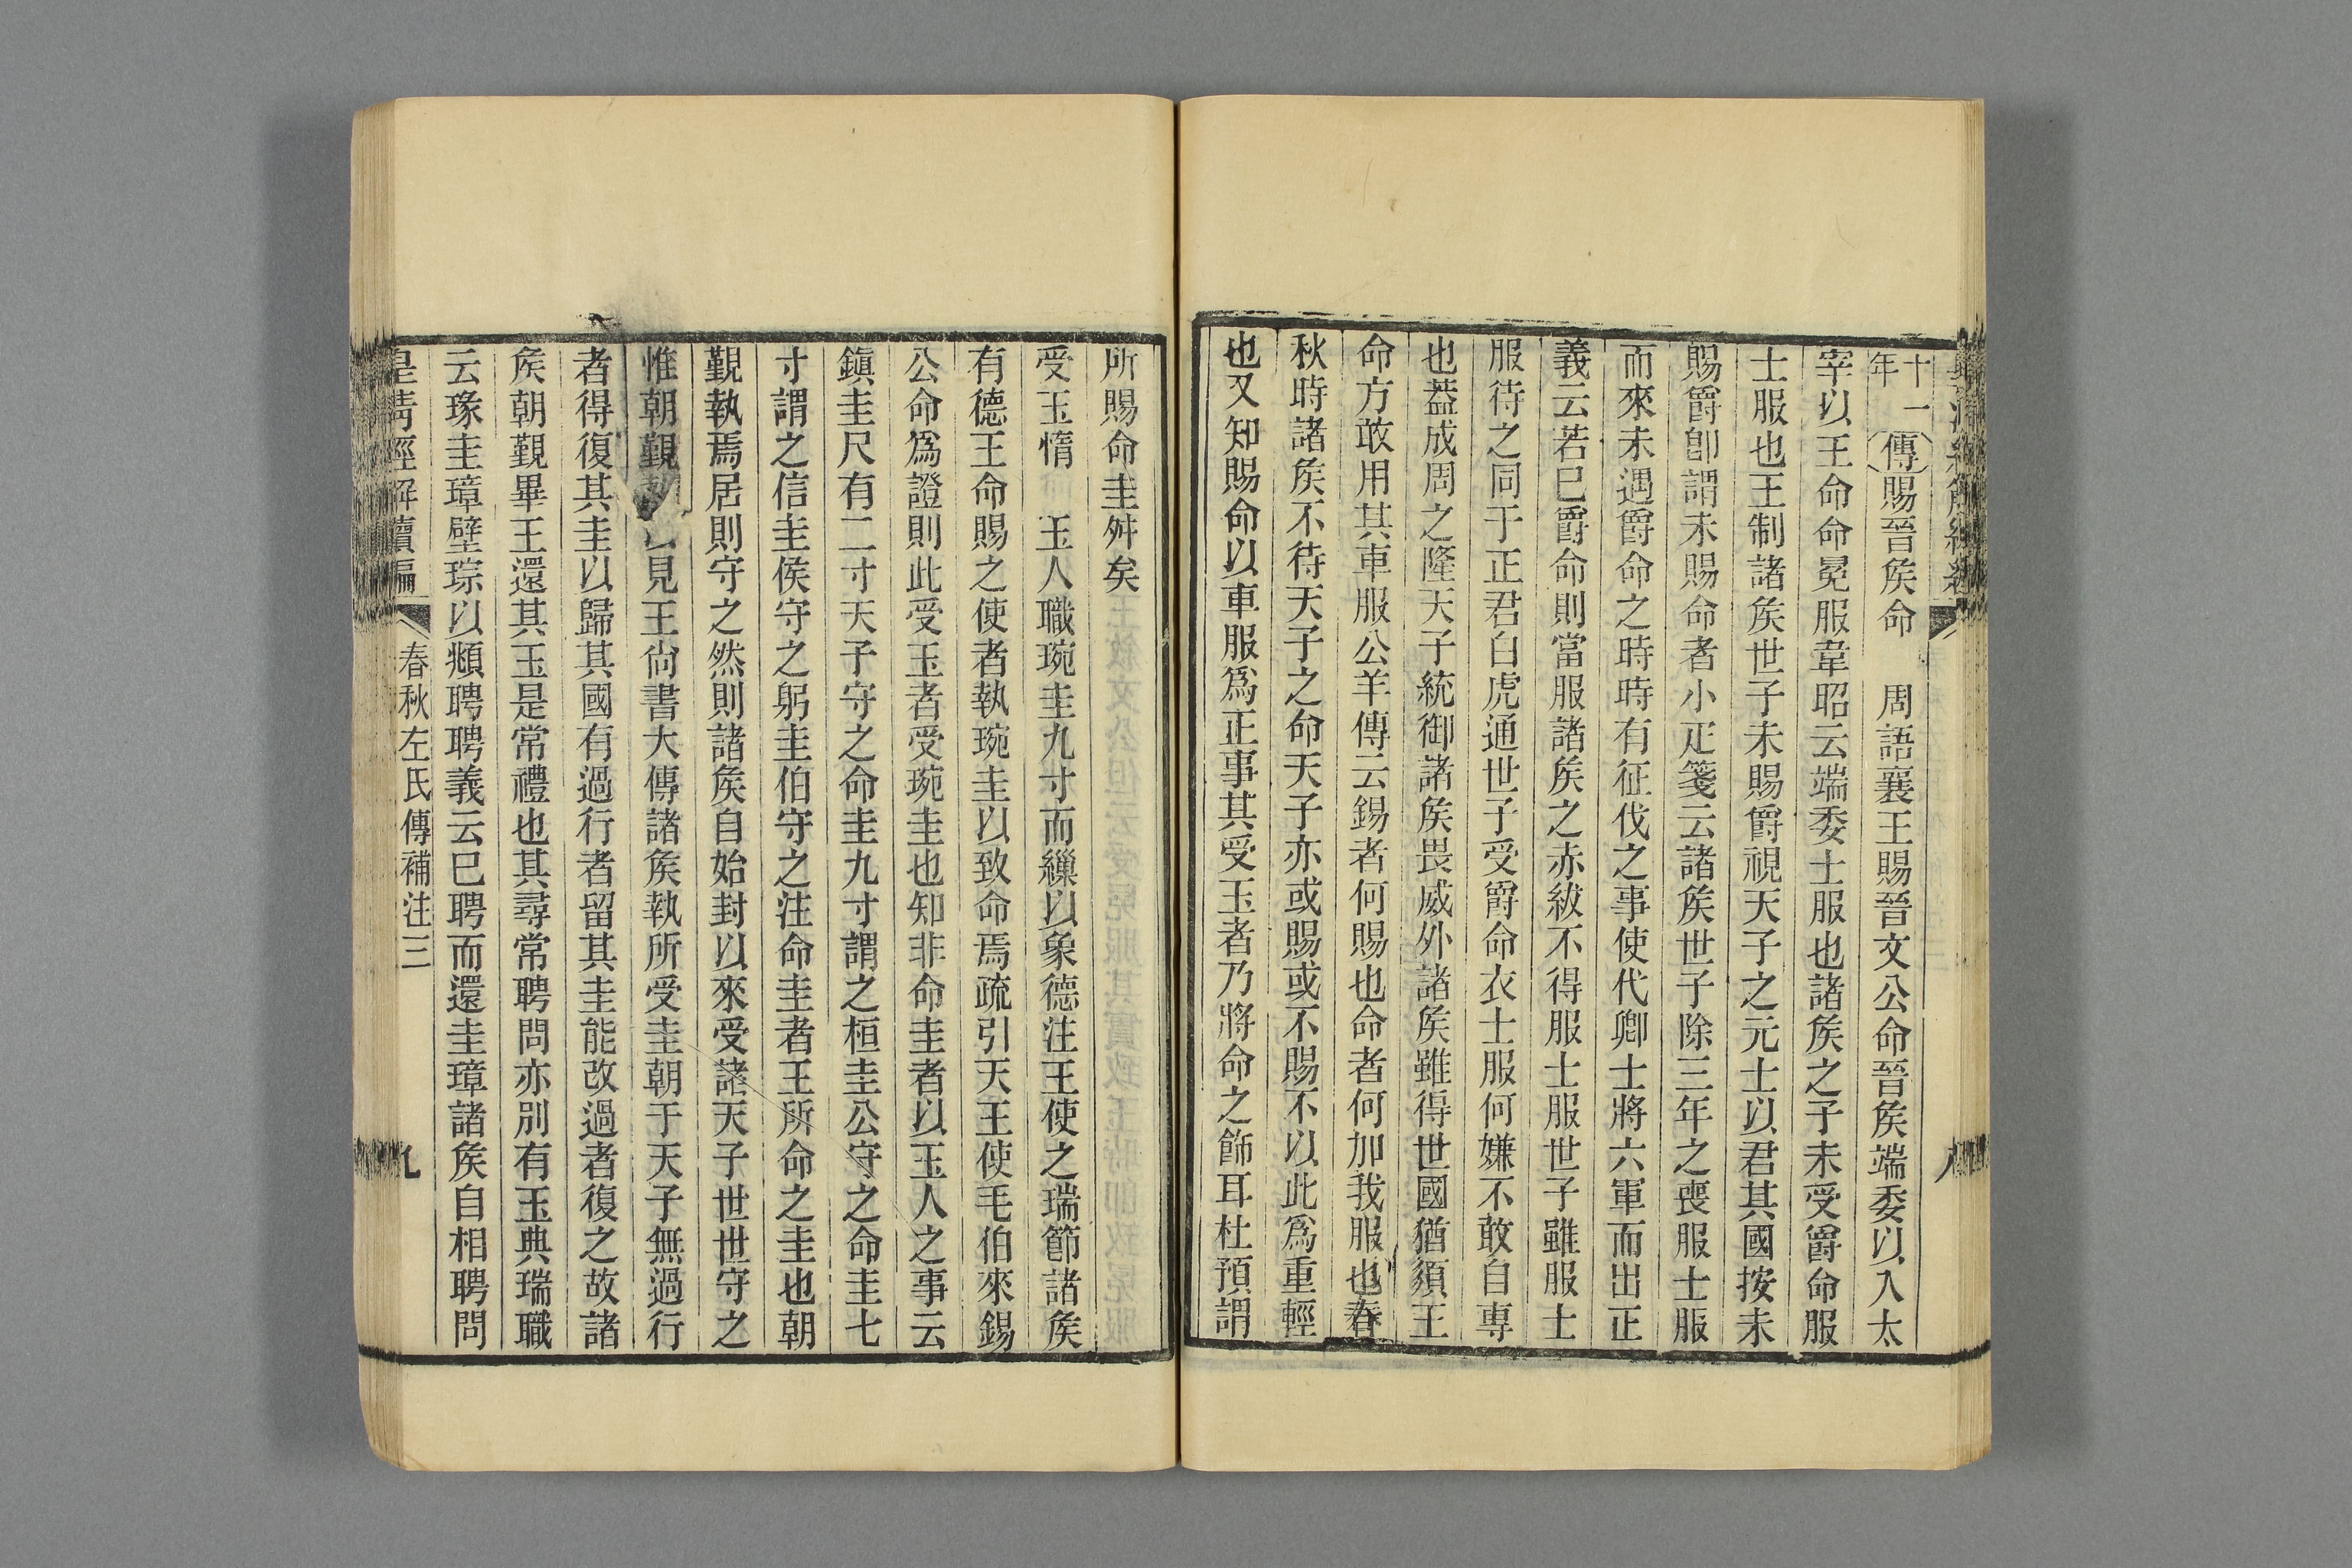 八
十一年傳賜晉矦命　周語襄王賜晉文公命晉矦端委以入太
宰以王命命冕服韋昭云端委士服也諸矦之子未受爵命服
士服也王制諸矦世子未賜爵視天子之元士以君其國按未
賜爵卽謂未賜命者小疋箋云諸矦世子除三年之喪服士服
而來未遇爵命之時時有征伐之事使代卿士將六軍而出正
義云若已爵命則當服諸矦之赤紱不得服士服世子雖服士
服待之同于正君白虎通世子受爵命衣士服何嫌不敢自專
也葢成周之隆天子統御諸矦畏威外諸矦雖得世國猶須王
命方敢用其車服公羊傳云錫者何賜也命者何加我服也春
秋時諸矦不待天子之命天子亦或賜或不賜不以此爲重輕
也又知賜命以車服爲正事其受玉者乃將命之飾耳杜預謂
所賜命圭舛矣
受玉惰　玉人職琬圭九寸而繅以象德注王使之瑞節諸矦
有德王命賜之使者執琬圭以致命焉疏引天王使毛伯來錫
公命爲證則此受玉者受琬圭也知非命圭者以玉人之事云
鎭圭尺有二寸天子守之命圭九寸謂之桓圭公守之命圭七
寸謂之信圭侯守之躬圭伯守之注命圭者王所命之圭也朝
覲執焉居則守之然則諸矦自始封以來受諸天子世世守之
惟朝覲以見王尙書大傳諸矦執所受圭朝于天子無過行
者得復其圭以歸其國有過行者留其圭能改過者復之故諸
矦朝覲畢王還其玉是常禮也其尋常聘問亦別有玉典瑞職
云瑑圭璋璧琮以頫聘聘義云已聘而還圭璋諸矦自相聘問
皇清經解續編　春秋左氏傳補注三　九